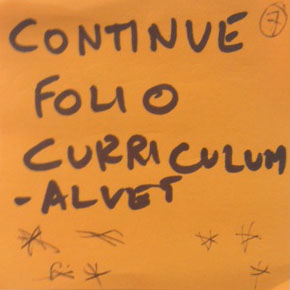 CONTINUE 7
FOLIO
CURRICULUM
-ALVET